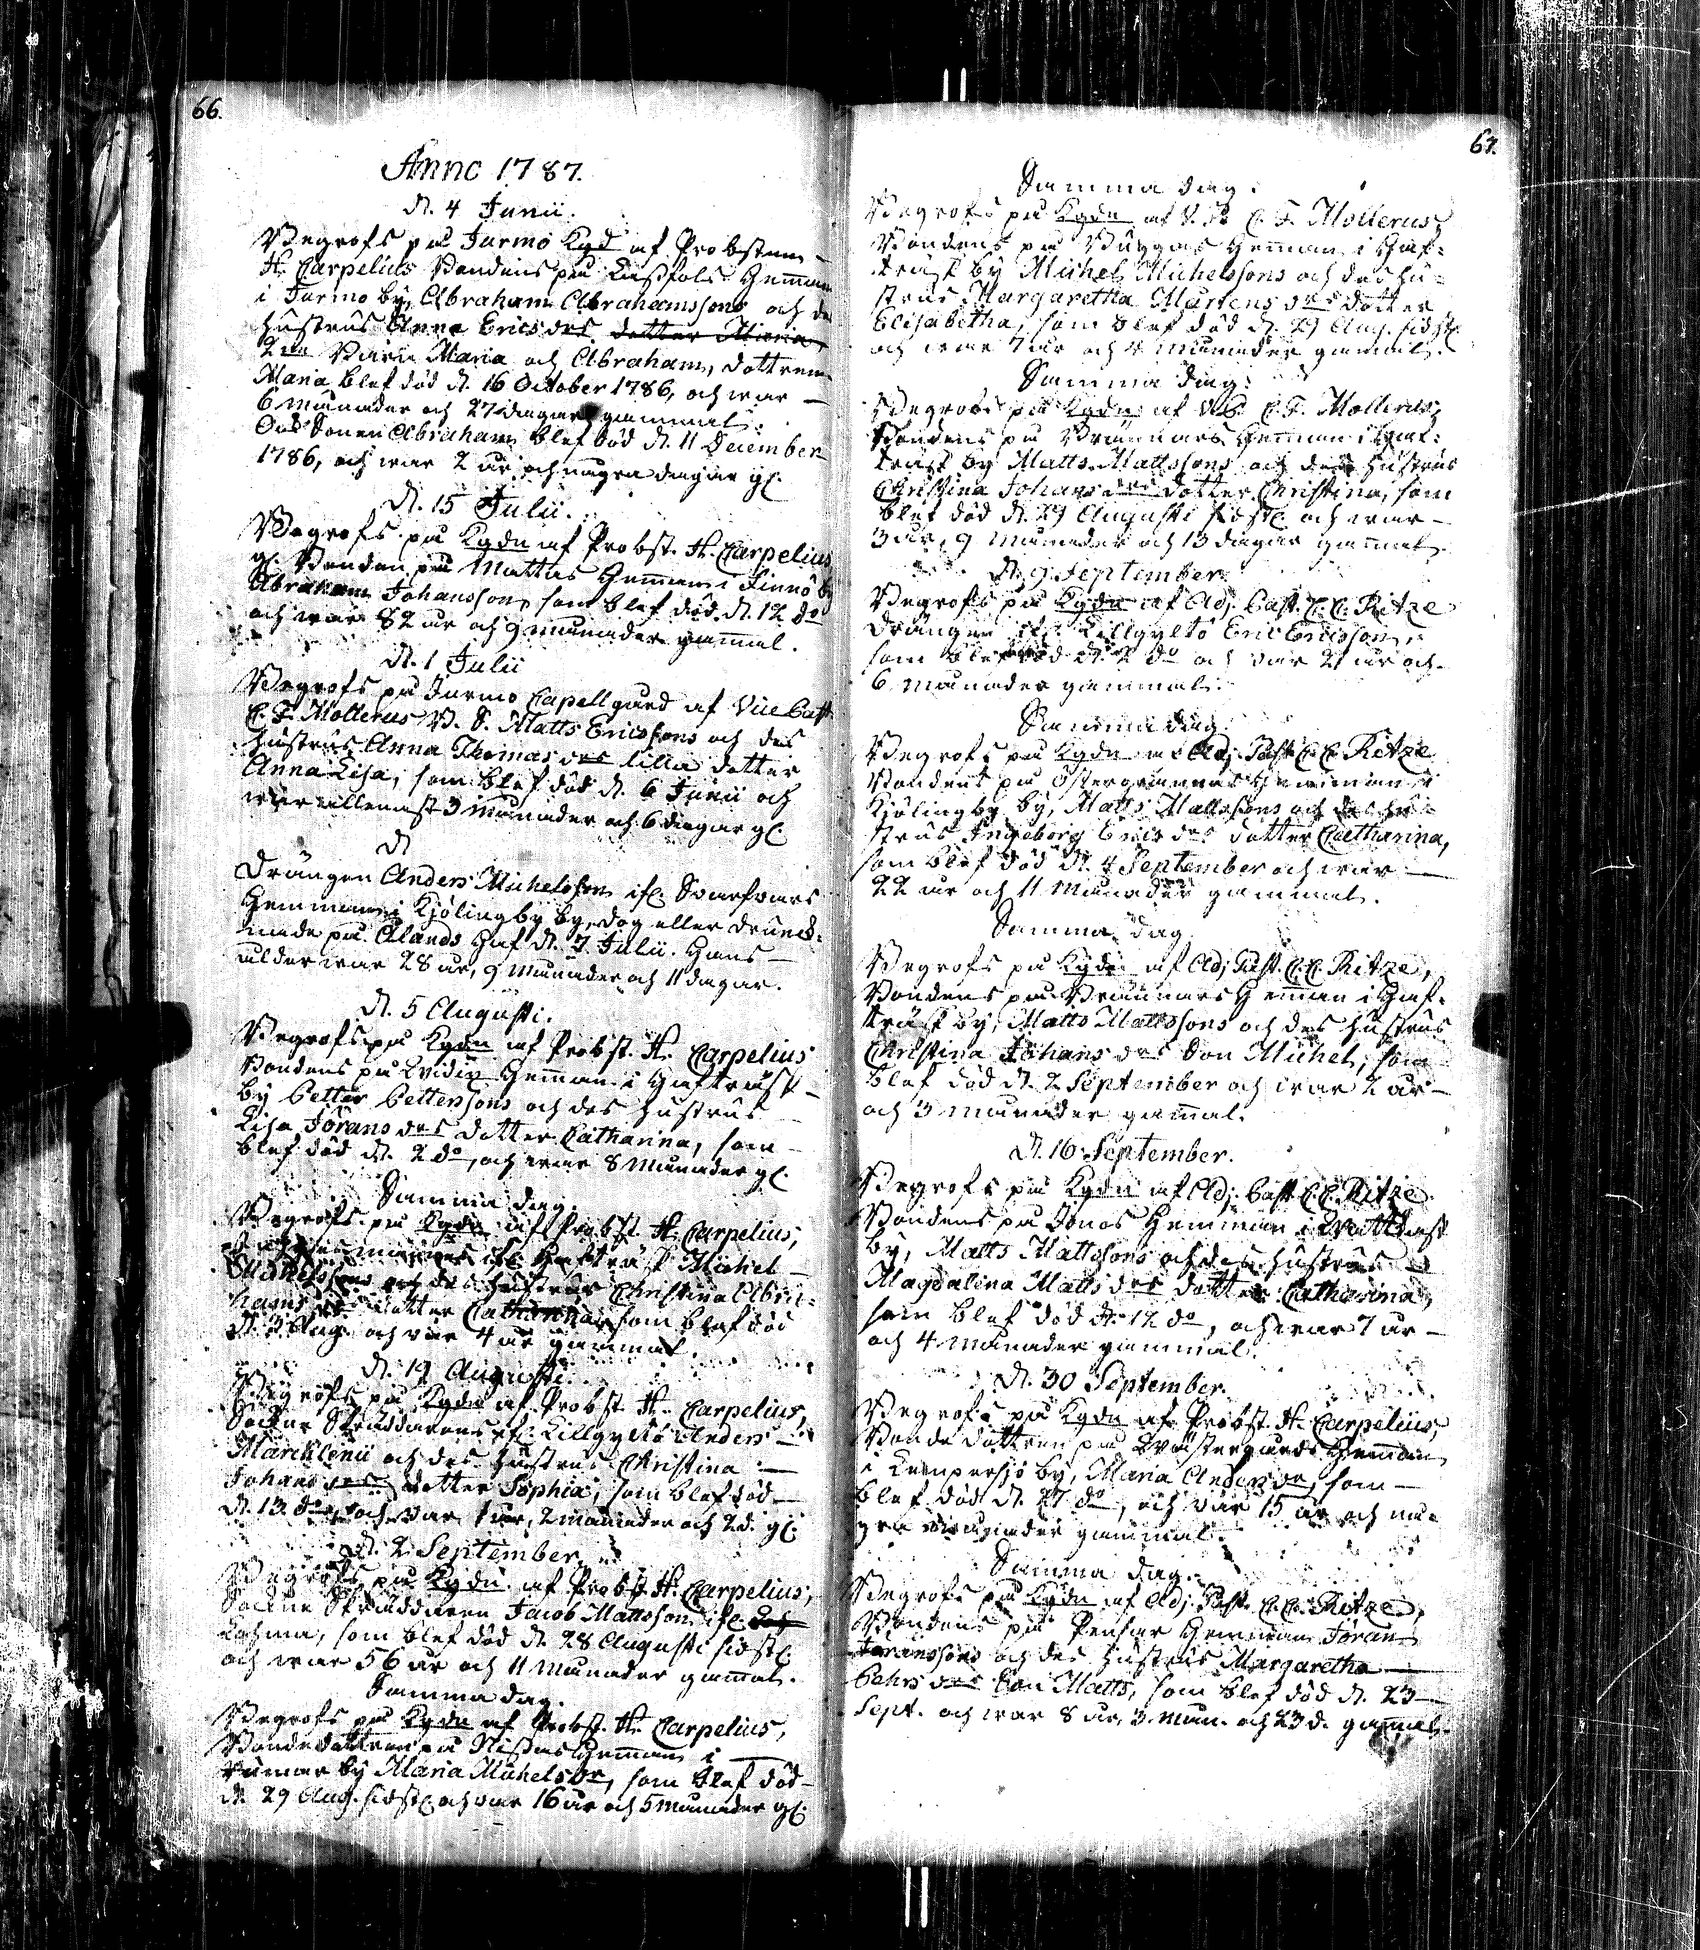 66.
Anno 1787.
d. 4 Junii.
Begrofs på Jurmo Kgd af Probsten
H. Carpelius Bondens på Hemman
i Jurmo by, Abraham Abrahamssons och des
hustrus Anna Ericsdrs dotter Maria
2ne Barn Maria och Abraham, dottren
Maria blef död d. 16 October 1786, och war
6 månader och 27 dagar gammal.
Sonen Abraham blef död d. 11 December
1786, och war 2 år och några dagar gl.
d. 15 Julii.
Begrofs på Kgdn af Probst. H. Carpelius
gl. Bonden på Mattas Hemman i Finnö by
Abraham Johansson, som blef död d. 12 do
och war 82 år och 9 månader gammal.
d. 1 Julii
Begrofs på Jurmo Capellgård af Vice Past.
C. F. Mollerus B. S. Matts Ericssons och des
hustrus Anna Thomasdrs lilla dotter
Anna Lisa, som blef död d. 6 Junii och
war allenast 3 månader och 6 dagar gl.
d.
Drängen Anders Michelsson ifr. Svarfvars
Hemman i Kjölingby by, dog eller drunck-
nade på Ålands Haf d. 7 Julii. Hans
ålder war 28 år, 9 månader och 11 dagar.
d. 5 Augusti.
Begrofs på Kgdn af Probst. H. Carpelius
Bondens på Hemman i Hafträsk
by Petter Pettersons och des hustrus
Lisa Jöransdrs dotter Catharina, som
blef död d. 2 do, och war 8 månader gl.
Samma dag
Begrofs på Kgdn af Probst H. Carpelius,
ifr. Hafträsk Michel
Michelssons och des hustrus Christina Abra-
hamsdrs dotter Catharina, som blef död
d. 3 Aug. och war 4 år gammal.
d. 19 Augusti.
Begrofs på Kgdn af Probst H. Carpelius,
Sockne Skräddarens ifr. Killgyltö Anders
Marcklenii och des hustrus Christina
Johansdrs dotter Sophia, som blef död
d. 13 do, och war 1 år, 2 månader och 2 d. gl.
d. 2 September
Begrofs på Kgdn af Probst H. Carpelius,
Sockne Skräddaren Jacob Mattsson ifr.
Lahma, som blef död d. 28 Augusti sidstl.
och war 56 år och 11 månader gammal.
Samma dag.
Begrofs på Kgdn af Probst. H. Carpelius,
Bondedottren på Nissas Hemman i
Rumar by Maria Michelsdr, som blef död
d. 29 Aug. sidstl. och war 16 år och 5 månader gl.
67.
Samma dag.
Begrofs på Kgdn af V. P. C. F. Mollerus,
Bondens på Byggas Hemman i Haf-
träsk by Michel Michelssons och des hu-
strus Margaretha Mårtensdrs dotter
Elisabetha, som blef död d. 29 Aug. sidstl.
och war 7 år och 4 månader gammal.
Samma dag.
Begrofs på Kgdn af V. P. C. F. Mollerus,
Bondens på Brännars Hemman i Haf-
träsk by Matts Mattssons och des hustrus
Christina Johansdrs dotter Christina, som
blef död d. 29 Augusti sidstl. och war
3 år, 9 månader och 13 dagar gammal.
d. 9 September.
Begrofs på Kgdn af Adj. Past. C. C. Ritze
Drängen ifr. Killgyltö Eric Ericsson,
som blef död d. 2 do och war 21 år och
6 månader gammal.
Samma dag
Begrofs på Kgdn af Adj. Past. C. C. Ritze
Bondens på Östergrannas Hemman i
Kjölingby by, Matts Mattssons och des hu-
strus Ingeborg Ericsdrs dotter Catharina,
som blef död d. 4 September och war
22 år och 11 månader gammal.
Samma dag
Begrofs på Kgdn af Adj. Past. C. C. Ritze,
Bondens på Brännars Hemman i Haf-
träsk by, Matts Mattssons och des hustrus
Christina Johansdrs Son Michel, som
blef död d. 2 September och war 2 år
och 3 månader gammal.
d. 16 September.
Begrofs på Kgdn af Adj. Past. C. C. Ritze
Bondens på Jonas Hemman i
by, Matts Mattssons och des hustrus
Magdalena Mattsdrs dotter Catharina,
som blef död d. 12 do, och war 7 år
och 4 månader gammal.
d. 30 September.
Begrofs på Kgdn af Probst. H. Carpelius,
Bonde dottren på Wästergårds Hemman
i Kumpersjö by, Maria Andersdr, som
blef död d. 27 do, och war 15 år och nå-
gra månader gammal.
Samma dag.
Begrofs på Kgdn af Adj. Past. C. C. Ritze,
Bondens på Pensar Hemman Jöran
Jöranssons och des hustrus Margaretha
Pehrsdrs Son Matts, som blef död d. 23
Sept. och war 8 år, 3 mån. och 23 d. gammal.